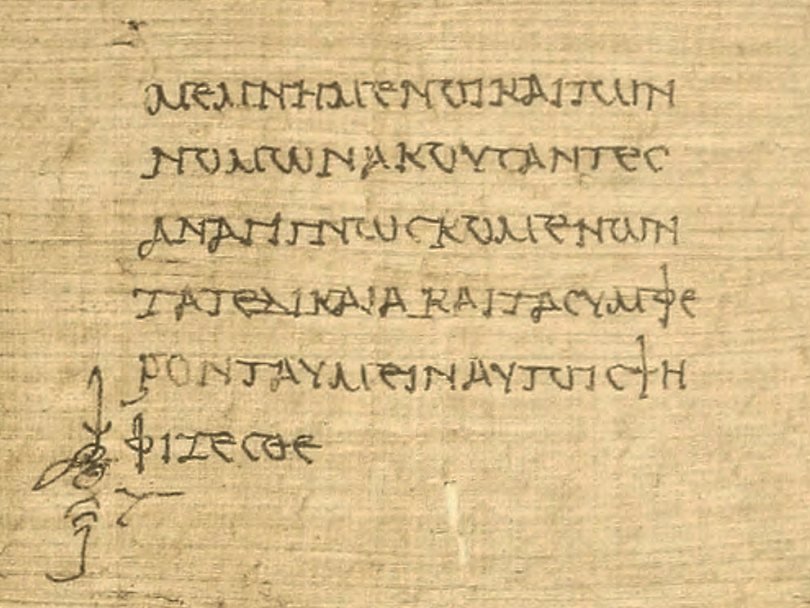 ΜΕΜΝΗΜΕΝΟΙΚΑΙΤΩΝ
ΝΟΜΩΝΑΚΟΥCΑΝΤΕC
ΑΝΑΓΙΓΝΩCΚΟΜΕΝΩΝ
ΤΑΤΕΔΙΚΑΙΑΚΑΙΤΑCΥΜΦΕ
ΡΟΝΤΑΥΜΕΙΝΑΥΤΟΙCΨΗ
ΦΙΖΕCΘΕ